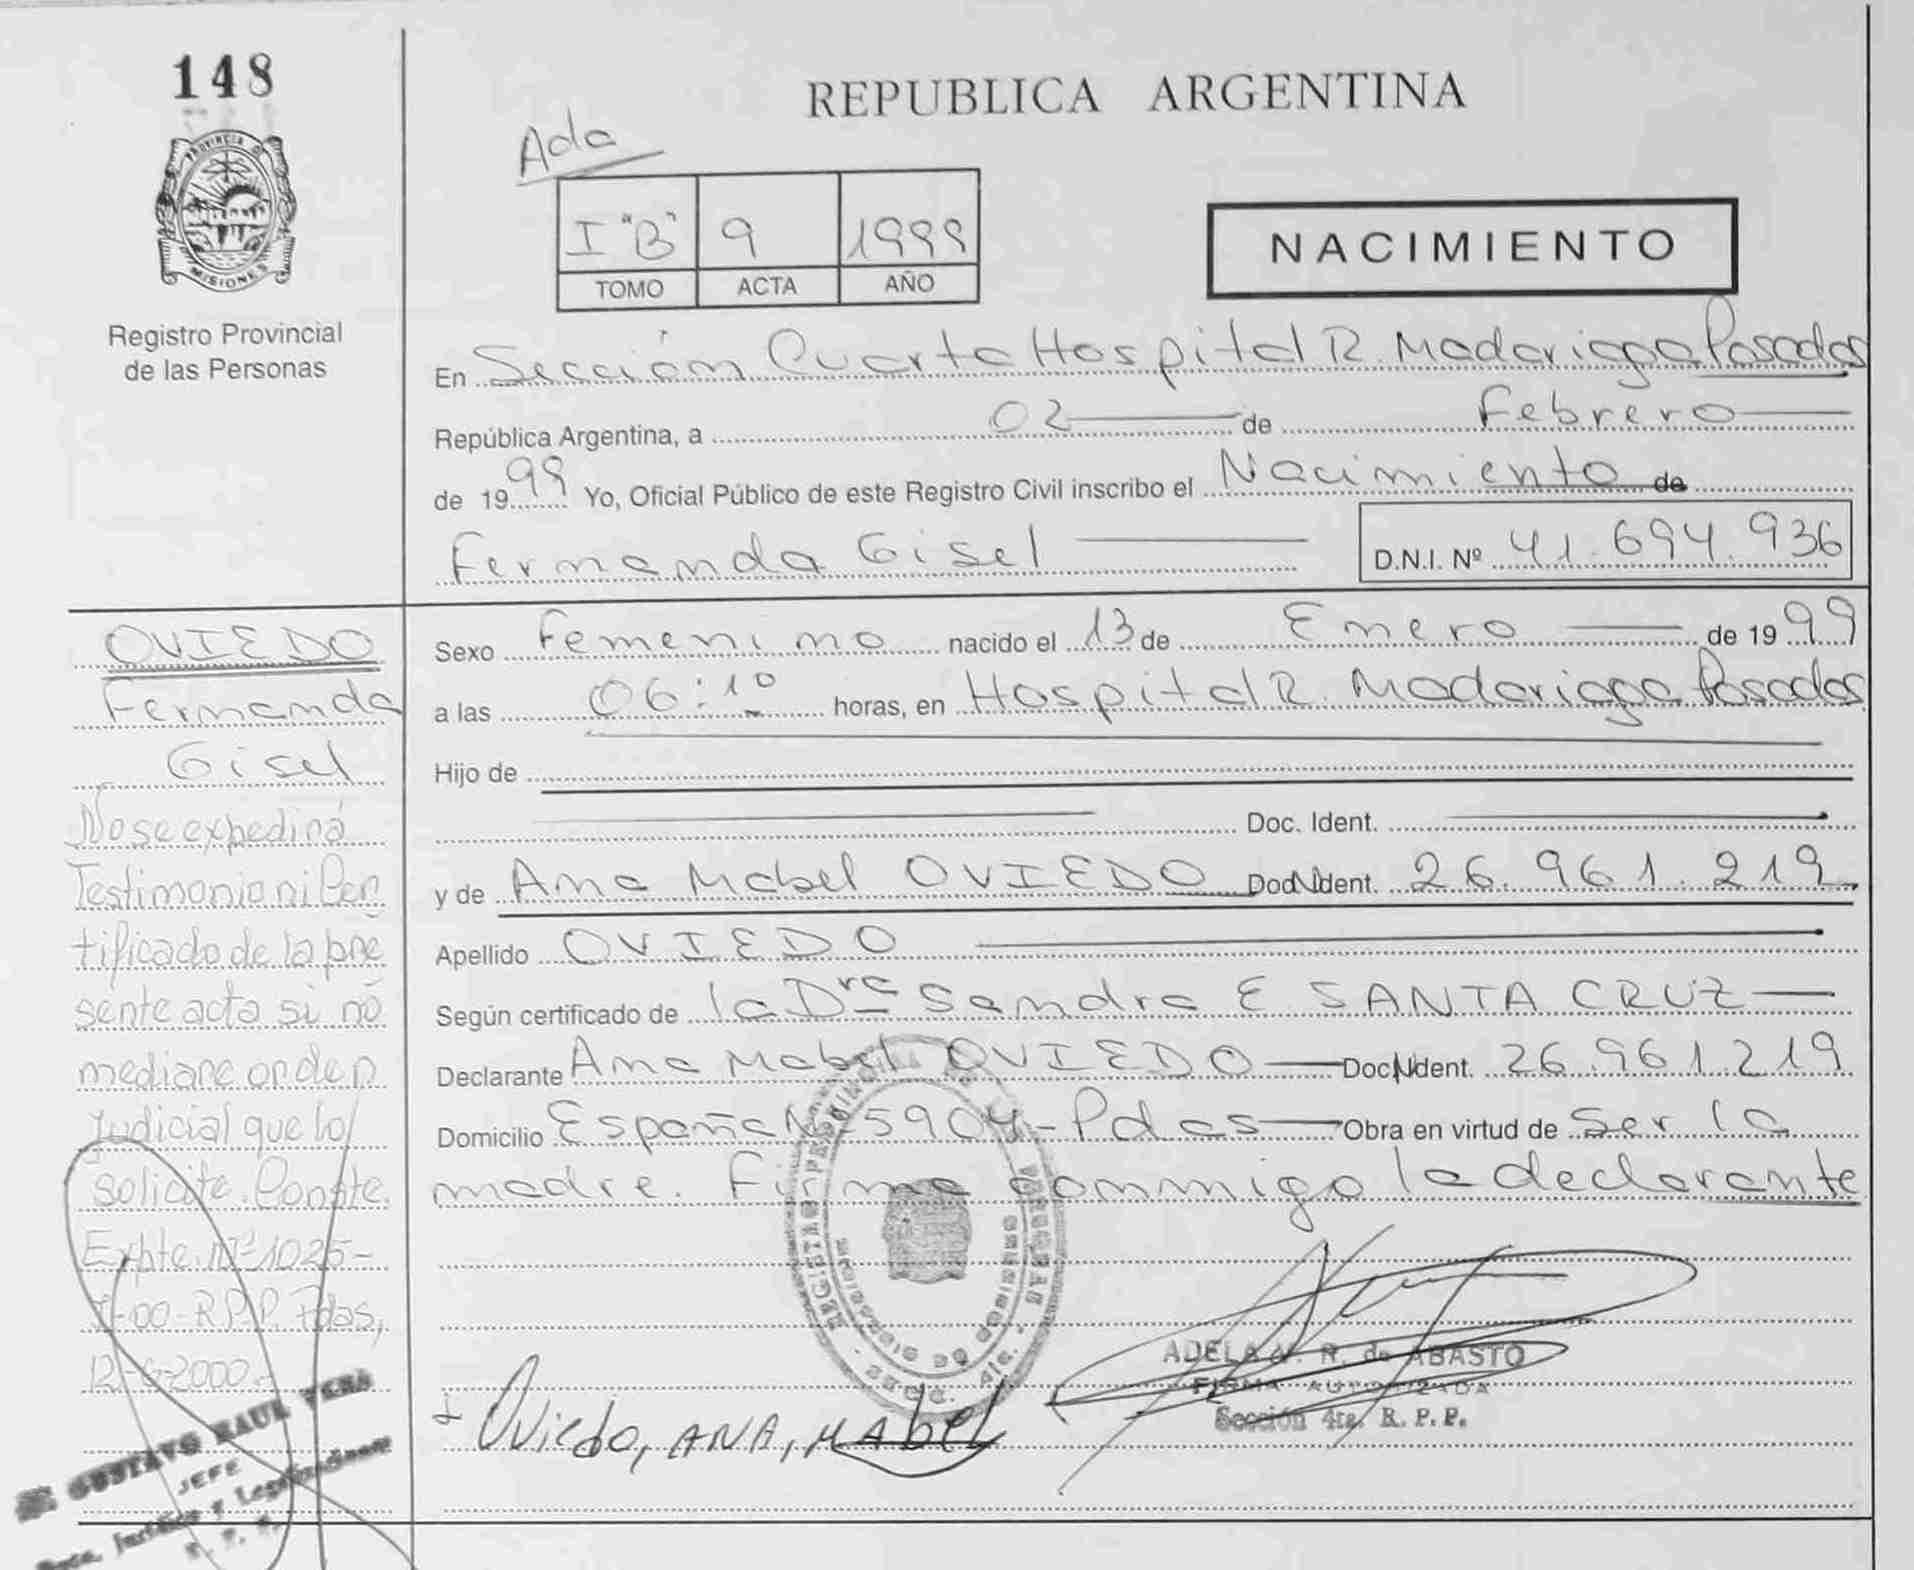 148
PROVINCIA DE
MISIONES
Registro Provincial
de las Personas
REPUBLICA ARGENTINA
Ada
I "B" 9 1999
TOMO ACTA AÑO
NACIMIENTO
En Sección Cuarta Hospital R. Madariaga Posadas
República Argentina, a 02 de Febrero
de 1999 Yo, Oficial Público de este Registro Civil inscribo el Nacimiento de
Fernanda Gisel D.N.I. Nº 41.694.936
Sexo Femenino nacido el 13 de Enero de 1999
a las 06:10 horas, en Hospital R. Madariaga Posadas
Hijo de
Doc. Ident.
y de Ana Mabel OVIEDO Doc. Ident. 26.961.219
Apellido OVIEDO
Según certificado de la Dra Sandra E SANTA CRUZ
Declarante Ana Mabel OVIEDO Doc. Ident. 26.961.219
Domicilio España Nº 5904 - Pdas Obra en virtud de Ser la
madre. Firma conmigo la declarante
OVIEDO
Fernanda
Gisel
No se expedirá
Testimonio ni Cer
tificado de la pre
sente acta si nó
mediare orden
judicial que lo
solicite. Conste.
Expte. Nº 1025-
-00-R.P.P. Pdas,
12-6-2000.-
GUSTAVO RAUL VERA
JEFE
R. P. P.
Oviedo, ANA, MAbel
ADELA R. de ABASTO
FIRMA AUTORIZADA
Sección 4ta. R. P. P.